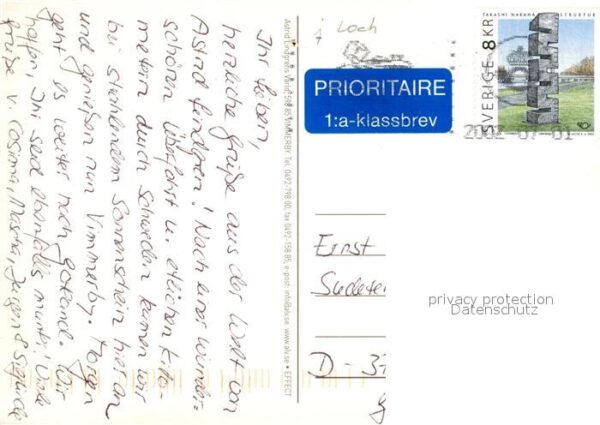 Ihr Lieben,
herzliche Grüße aus der Welt von
Astrid Lindgren! Nach einer wunder-
schönen Überfahrt u. etlichen Kilo-
metern durch Schweden kamen wir
bei strahlendem Sonnenschein hier an
und genießen nun Vimmerby. Morgen
geht es weiter nach Gotland. Wir
hoffen Ihr seid ebenfalls munter! Viele
Grüße v. Jürgen &
Astrid Lindgrens Värld, 598 85 VIMMERBY. Tel. 0492-798 00, fax 0492-158 85, e-post: info@alv.se • www.alv.se • EFFECT
1 Loch
PRIORITAIRE
1:a-klassbrev
TAKASHI NARAHA STRUKTUR
SVERIGE 8 KR
2002-07-01
Ernst
Sudeten
D-37
privacy protection
Datenschutz